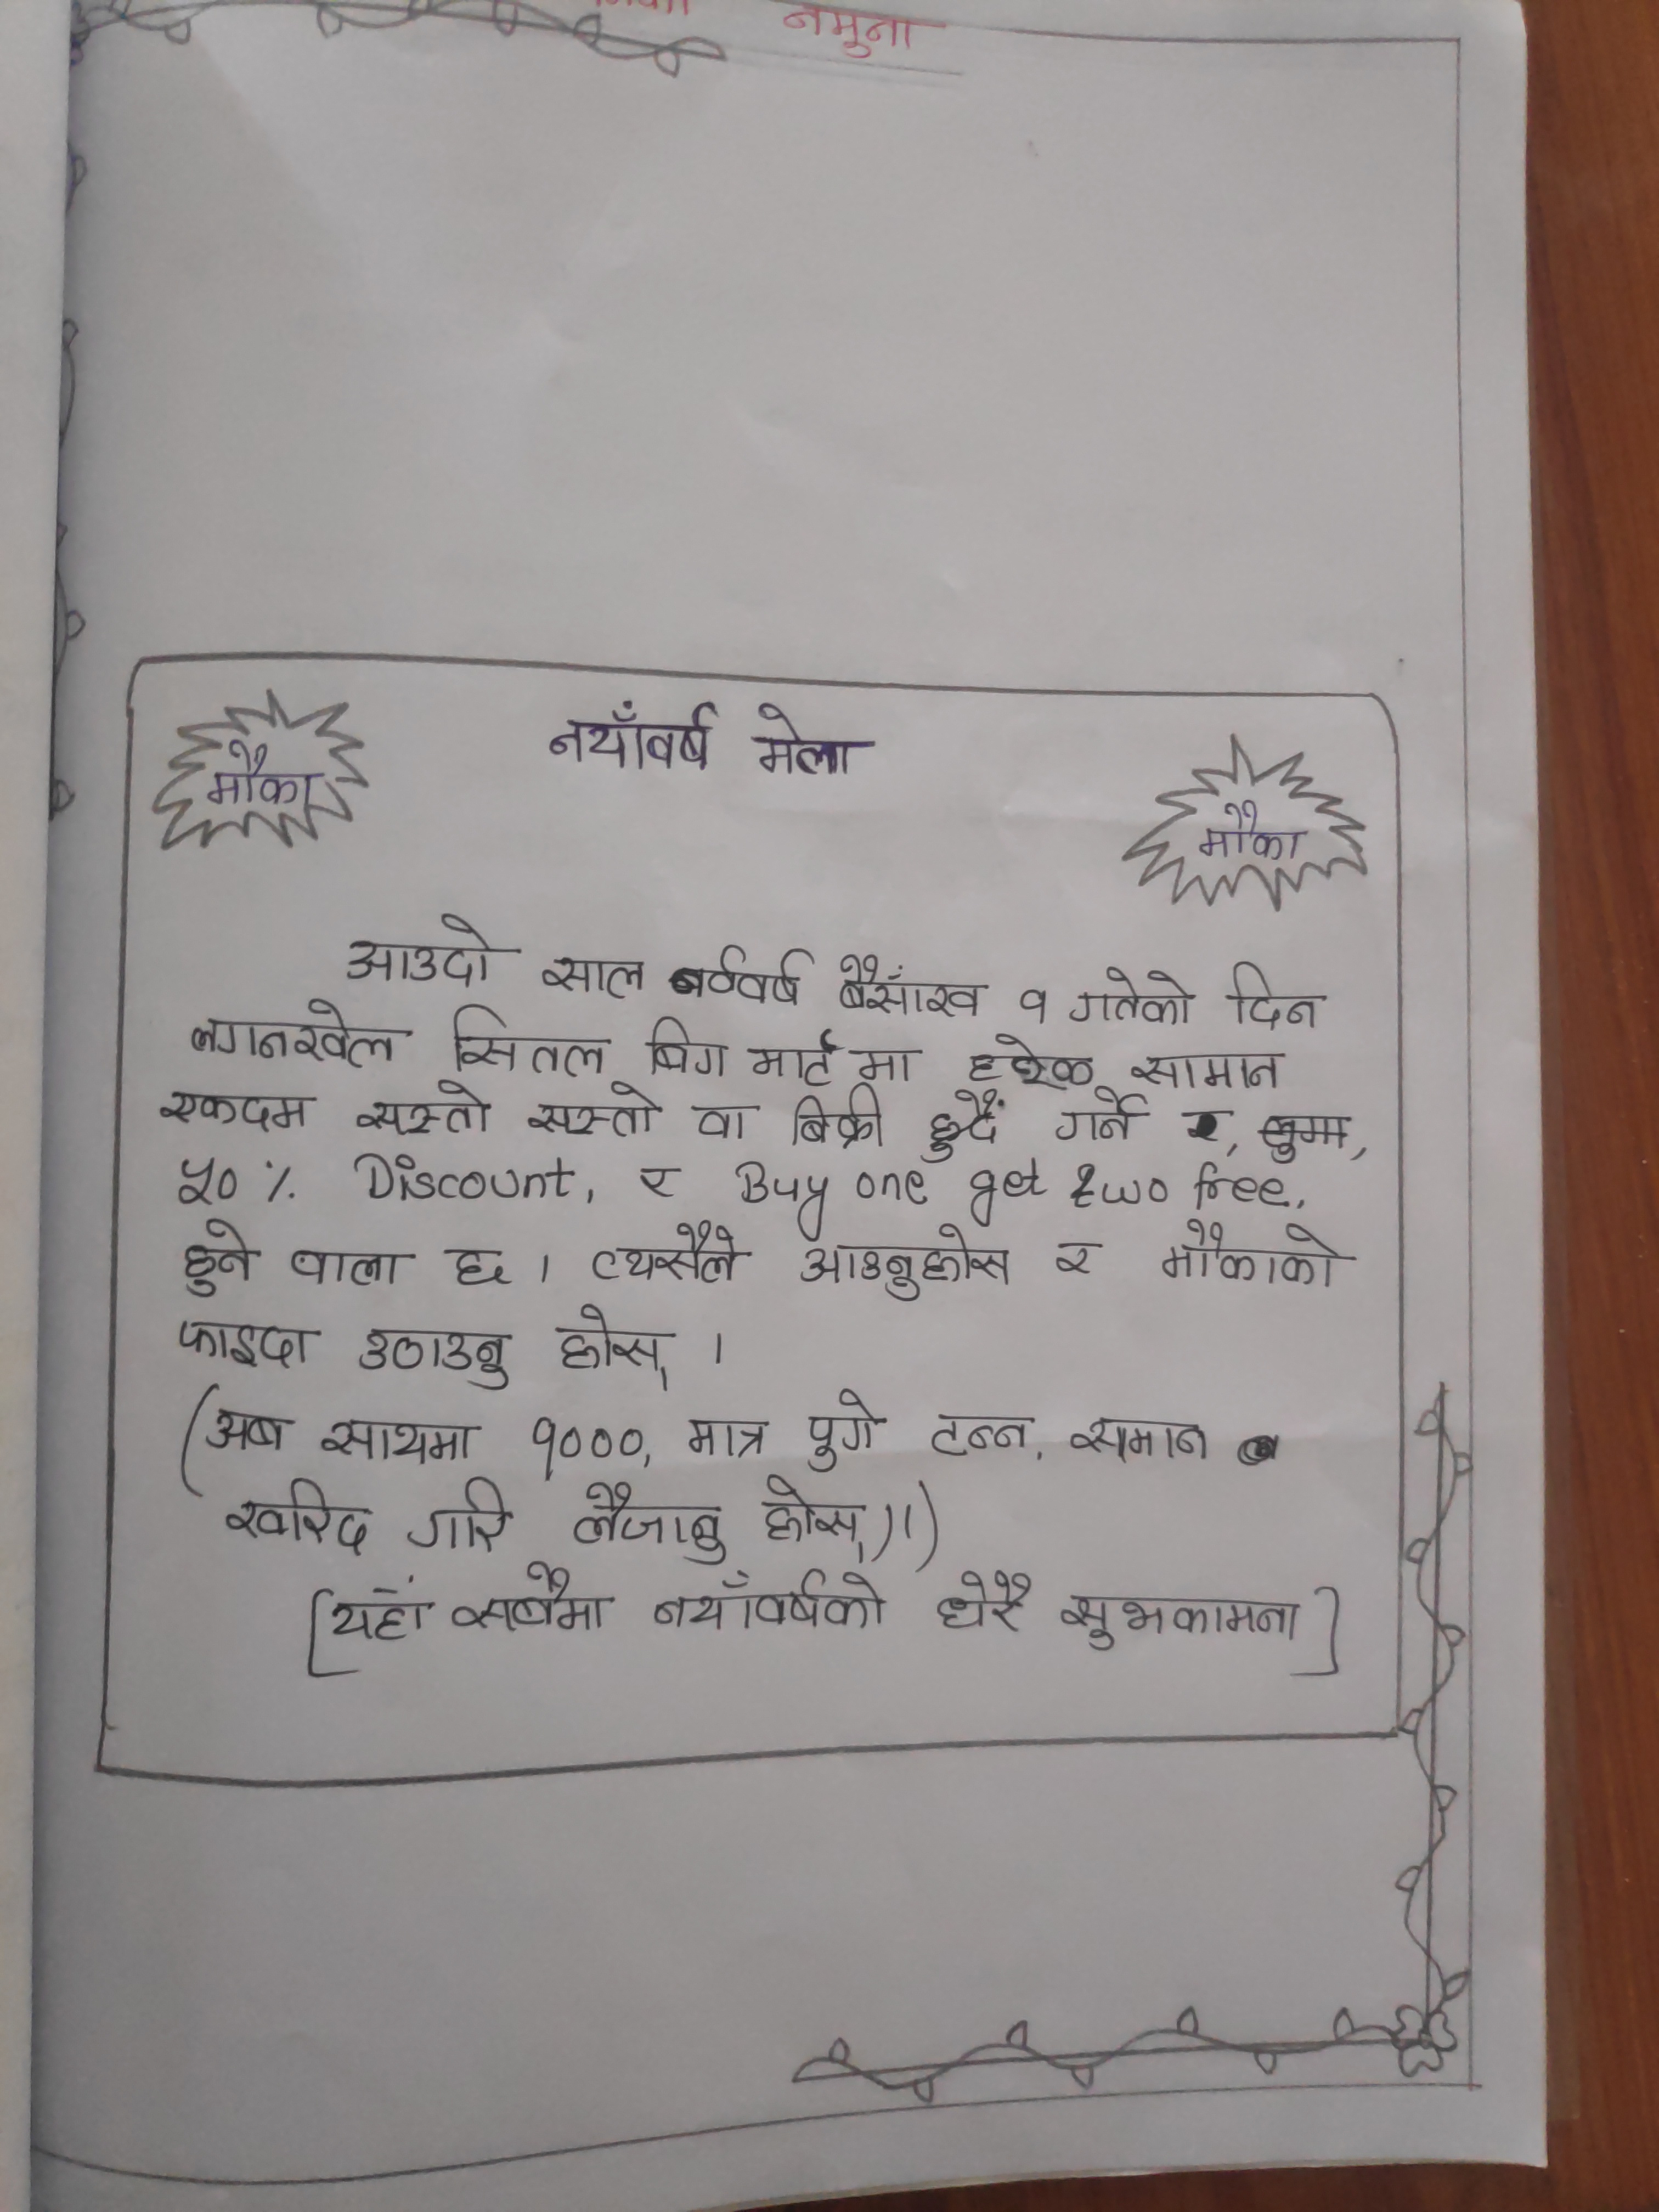 नमुना
नयाँवर्ष मेला
मौका
मौका
आउदो साल वर्ष बैसाँख १ गतेको दिन
लगनखेल सितल बिग मार्ट मा हरेक सामान
एकदम सस्तो सस्तो वा बिक्री हुदैं गर्ने र, लुम्म,
५०% Discount, र Buy one get two free.
हुने वाला छ । त्यसैले आउनुहोस र मौकाको
फाइदा उठाउनु होस् ।
(अब साथमा १०००, मात्र पुगे टन्न, समान
खरिद गरि लैजानु होस्)।।)
[यहाँ सबैमा नयाँवर्षको धेरै सुभकामना]